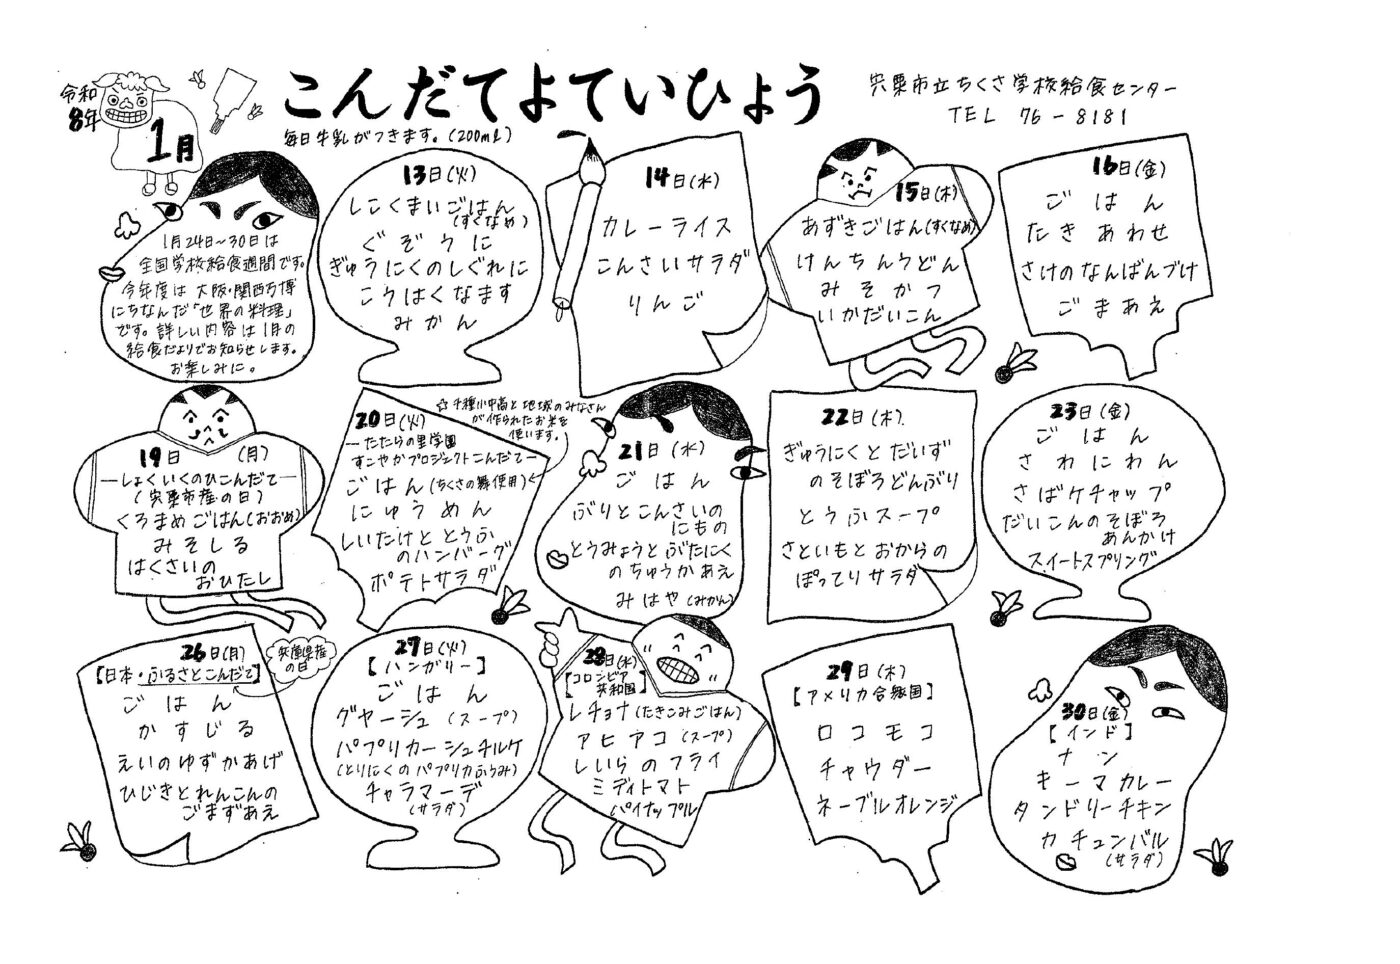 令和
8年
1月
こんだてよていひょう
宍粟市立ちくさ学校給食センター
TEL 76-8181
毎日牛乳がつきます。(200ml)
1月24日~30日は
全国学校給食週間です。
今年度は 大阪・関西万博
にちなんだ「世界の料理」
です。詳しい内容は1月の
給食だよりでお知らせします。
お楽しみに。
13日(火)
しこくまいごはん
(すくなめ)
ぐぞうに
ぎゅうにくのしぐれに
こうはくなます
みかん
14日(水)
カレーライス
こんさいサラダ
りんご
15日(木)
あずきごはん(すくなめ)
けんちんうどん
みそかつ
いかだいこん
16日(金)
ごはん
たきあわせ
さけのなんばんづけ
ごまあえ
19日(月)
―しょくいくのひこんだて―
(宍粟市産の日)
くろまめごはん(おおめ)
みそしる
はくさいの
おひたし
20日(火)
☆千種小中高と地域のみなさん
が作られたお米を
使います。
―たたらの里学園
すこやかプロジェクトこんだて―
ごはん(ちくさの舞使用)
にゅうめん
しいたけととうふ
のハンバーグ
ポテトサラダ
21日(水)
ごはん
ぶりとこんさいの
にもの
とうみょうとぶたにく
のちゅうかあえ
みはや(みかん)
22日(木)
ぎゅうにくとだいず
のそぼろどんぶり
とうふスープ
さといもとおからの
ぽってりサラダ
23日(金)
ごはん
さわにわん
さばケチャップ
だいこんのそぼろ
あんかけ
スイートスプリング
26日(月)
兵庫県産
の日
【日本・ふるさとこんだて】
ごはん
かすじる
えいのゆずかあげ
ひじきとれんこんの
ごまずあえ
27日(火)
【ハンガリー】
ごはん
グヤーシュ(スープ)
パプリカーシュチルケ
(とりにくのパプリカふうみ)
チャラマーデ
(サラダ)
28日(水)
【コロンビア
共和国】
レチョナ(たきこみごはん)
アヒアコ(スープ)
しいらのフライ
ミディトマト
パイナップル
29日(木)
【アメリカ合衆国】
ロコモコ
チャウダー
ネーブルオレンジ
30日(金)
【インド】
ナン
キーマカレー
タンドリーチキン
カチュンバル
(サラダ)